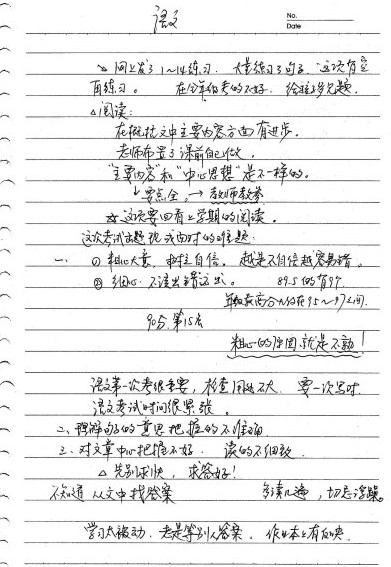 语文
No.
Date
网上发了1～14练习. 大量练习了句子. 这次有空
再练习。 在全年级考的不好.
△阅读:
在概括文中主要内容方面有进步.
老师布置了课前自己做.
"主要内容"和"中心思想"是不一样的。
↳要点全. → 教师教参
☆这次要回看上学期的阅读。
这次考试出现我面对的难题:
一、 ① 粗心大意. 自信. 越是不自信越容易错.
② 细心. 不该出错 89.5的有9个.
年级最高分大约在95～97之间.
90分. 第15名
粗心的原因就是不熟!
语文第一次考很重要, 检查用处不大. 要一次写对.
语文考试时间很紧张。
二、理解句子的意思把握的不准确.
三、对文章中心把握不好. 读的不细致.
△ 先别求快, 求答好!
不知道从文中找答案 多读几遍, 切忌浮躁.
学习太被动. 老是等别人答案. 作业本上有